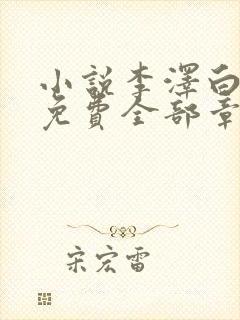 小説李澤白
免費全部章
宋宏雷